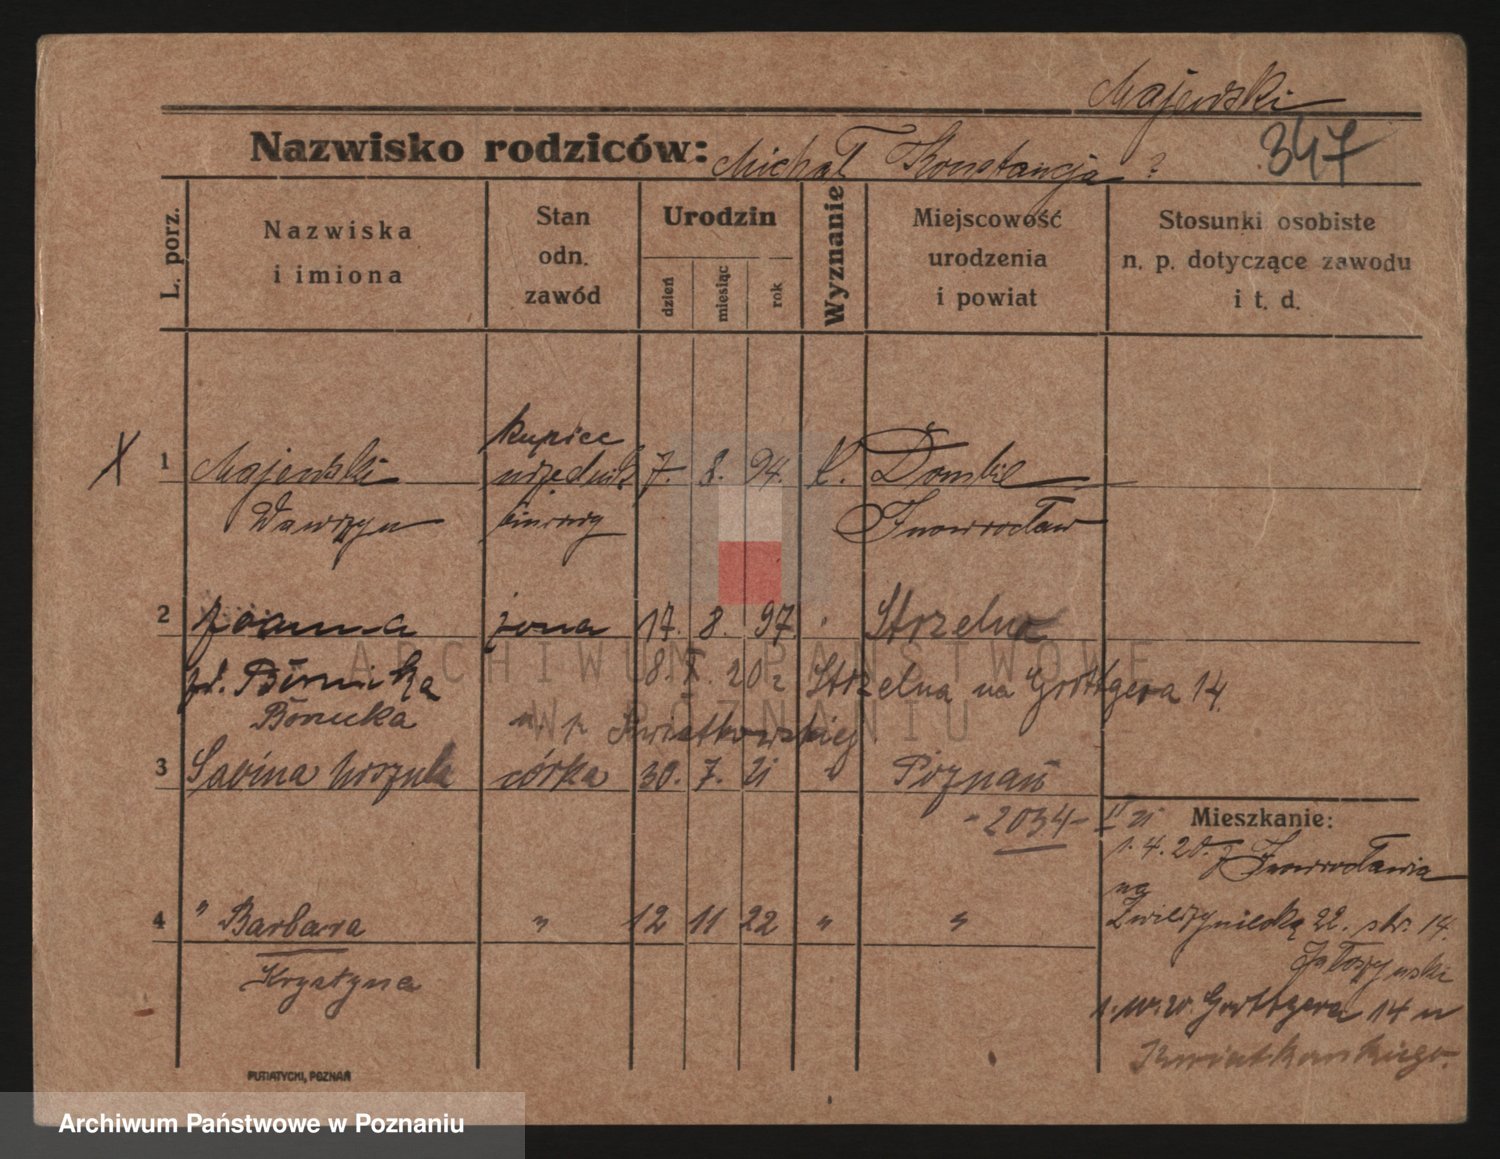 Majewski
Nazwisko rodziców: Michał Konstancja ?
347
L. porz.
Nazwiska
i imiona
Stan
odn.
zawód
Urodzin
dzień
miesiąc
rok
Wyznanie
Miejscowość
urodzenia
i powiat
Stosunki osobiste
n. p. dotyczące zawodu
i t. d.
kupiec
X 1 Majewski urzędnik 7. 8. 94. k. Dombie
Wawrzyn biurowy Inowrocław
2 Joanna żona 17. 8. 97. Strzelno
8. X. 20 z Strzelna na Grottgera 14.
Bonicka
" p. Kwiatkowskiej
3 Sabina Urszula córka 30. 7. 21 " Poznań
- 2034 - II 21
Mieszkanie:
1. 4. 20. z Inowrocławia
na
Zwierzyniecką 22. str. 14.
4 " Barbara " 12 11 22 " "
Krystyna
Grottgera 14 u
Kwiatkowskiego.
PUTIATYCKI, POZNAŃ
ARCHIWUM PAŃSTWOWE
W POZNANIU
Archiwum Państwowe w Poznaniu